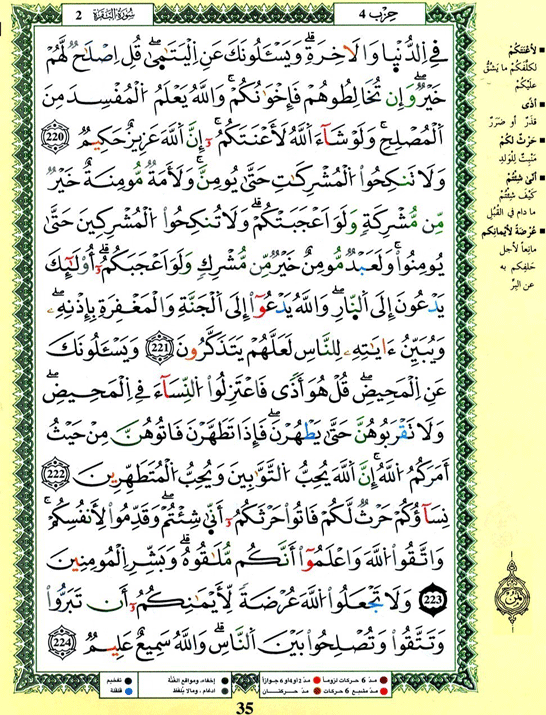 حِزْب 4
سُورَةُ البَقَرَة 2
فِي اِ۬لدُّنْي۪ا وَالَاخِرَةِۖ وَيَسْـَٔلُونَكَ عَنِ اِ۬لْيَتَٰم۪ىٰۖ قُلِ اِصْلَٰحٞ لَّهُمْ
خَيْرٞۖ وَإِن تُخَالِطُوهُمْ فَإِخْوَٰنُكُمْۖ وَاللَّهُ يَعْلَمُ اُ۬لْمُفْسِدَ مِنَ
اَ۬لْمُصْلِحِۖ وَلَوْ شَآءَ اَ۬للَّهُ لَأَعْنَتَكُمُۥٓۖ إِنَّ اَ۬للَّهَ عَزِيزٌ حَكِيمٞ 220
وَلَا تَنكِحُواْ اُ۬لْمُشْرِكَٰتِ حَتَّىٰ يُومِنَّۖ وَلَأَمَةٞ مُّومِنَةٌ خَيْرٞ
مِّن مُّشْرِكَةٖ وَلَوَ اَعْجَبَتْكُمْۖ وَلَا تُنكِحُواْ اُ۬لْمُشْرِكِينَ حَتَّىٰ
يُومِنُواْۖ وَلَعَبْدٞ مُّومِنٌ خَيْرٞ مِّن مُّشْرِكٖ وَلَوَ اَعْجَبَكُمُۥٓۖ أُوْلَٰٓئِكَ
يَدْعُونَ إِلَى اَ۬لنّ۪ارِۖ وَاللَّهُ يَدْعُوٓاْ إِلَى اَ۬لْجَنَّةِ وَالْمَغْفِرَةِ بِإِذْنِهِۦۖ
وَيُبَيِّنُ ءَايَٰتِهِۦ لِلنَّاسِ لَعَلَّهُمْ يَتَذَكَّرُونَ 221 وَيَسْـَٔلُونَكَ
عَنِ اِ۬لْمَحِيضِۖ قُلْ هُوَ أَذٗى فَاعْتَزِلُواْ اُ۬لنِّسَآءَ فِي اِ۬لْمَحِيضِۖ
وَلَا تَقْرَبُوهُنَّ حَتَّىٰ يَطْهُرْنَۖ فَإِذَا تَطَهَّرْنَ فَاتُوهُنَّ مِنْ حَيْثُ
أَمَرَكُمُ اُ۬للَّهُۖ إِنَّ اَ۬للَّهَ يُحِبُّ اُ۬لتَّوَّٰبِينَ وَيُحِبُّ اُ۬لْمُتَطَهِّرِينَ 222
نِسَآؤُكُمْ حَرْثٞ لَّكُمْ فَاتُواْ حَرْثَكُمُۥٓ أَنّ۪ىٰ شِئْتُمْۖ وَقَدِّمُواْ لِأَنفُسِكُمْۖ
وَاتَّقُواْ اُ۬للَّهَ وَاعْلَمُوٓاْ أَنَّكُم مُّلَٰقُوهُۖ وَبَشِّرِ اِ۬لْمُومِنِينَ
223 وَلَا تَجْعَلُواْ اُ۬للَّهَ عُرْضَةٗ لِّأَيْمَٰنِكُمُۥٓ أَن تَبَرُّواْ
وَتَتَّقُواْ وَتُصْلِحُواْ بَيْنَ اَ۬لنَّاسِۖ وَاللَّهُ سَمِيعٌ عَلِيمٞ 224
■ لأَعْنَتَكُمْ
لكلّفكُمْ ما يَشُقُّ
عليْكُمْ
■ أَذًى
قذرٌ أو ضررٌ
■ حَرْثٌ لكُمْ
مَنْبِتٌ لِلْولَدِ
■ أَنّى شِئْتُمْ
كَيْفَ شِئْتُمْ
ما دام في القُبُلِ
■ عُرْضَةً لأَيْمانِكم
مانِعاً لأجلِ
حَلِفِكم به
عن البِرِّ
ثمن
مدّ 6 حركات لزوماً ● مدّ 2 أو 4 أو 6 جوازاً ● إخفاء، ومواقع الغُنَّة ● تفخيم
مدّ مشبع 6 حركات ● مدّ حركتان ● إدغام، وما لا يُلفظ ● قلقلة
35